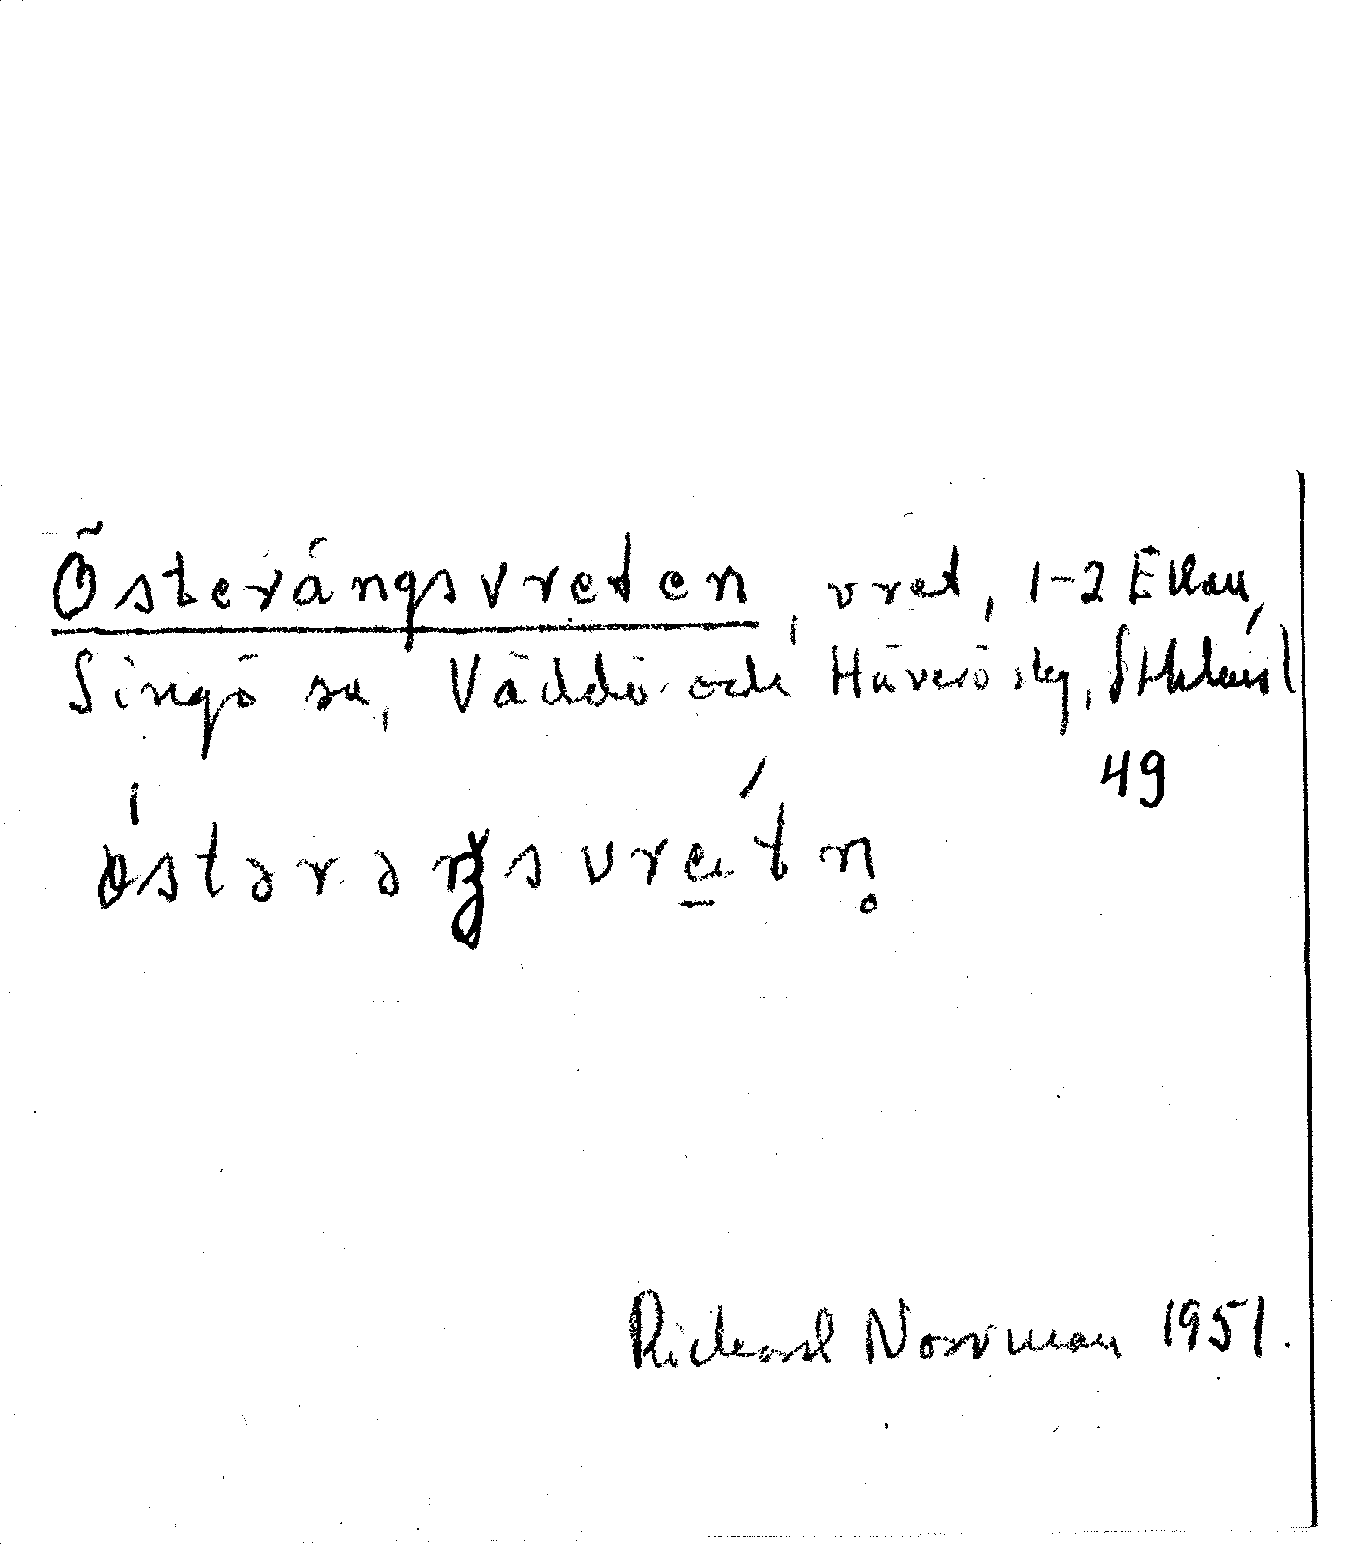 Österängsvreten, vret, 1-2 Ellan,
Singö sn, Väddö och Häverö skg, Sthlms l
49
östərəŋsvretn̥
Rickard Norrman 1951.